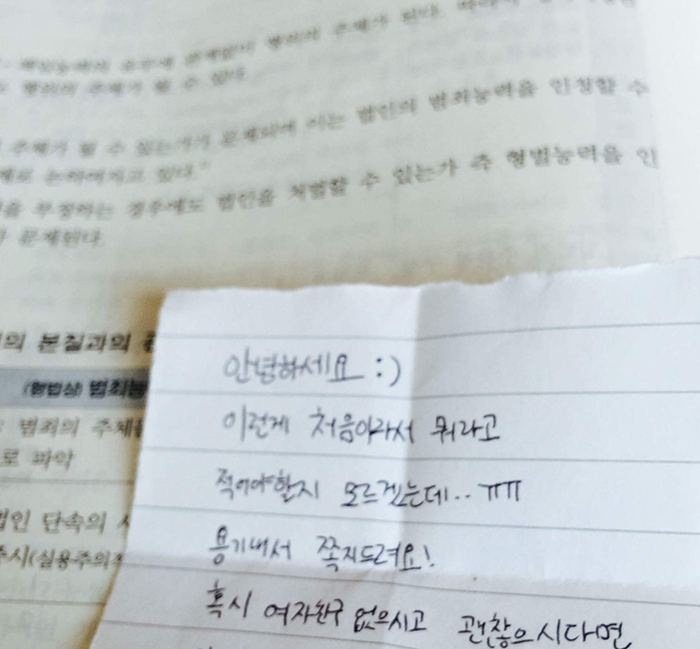 주체가 될 수 있는가가 문제되며 이는 법인의 범죄능력을 인정할 수
논하여지고 있다.
부정하는 경우에도 법인을 처벌할 수 있는가 즉 형벌능력을 인
문제된다.
의 본질과의
(형법상) 범죄능
범죄의 주체
로 파악
법인 단속의
주시(실용주의적
안녕하세요 :)
이런게 처음이라서 뭐라고
적어야할지 모르겠는데.. ㅠㅠ
용기내서 쪽지드려요!
혹시 여자친구 없으시고 괜찮으시다면